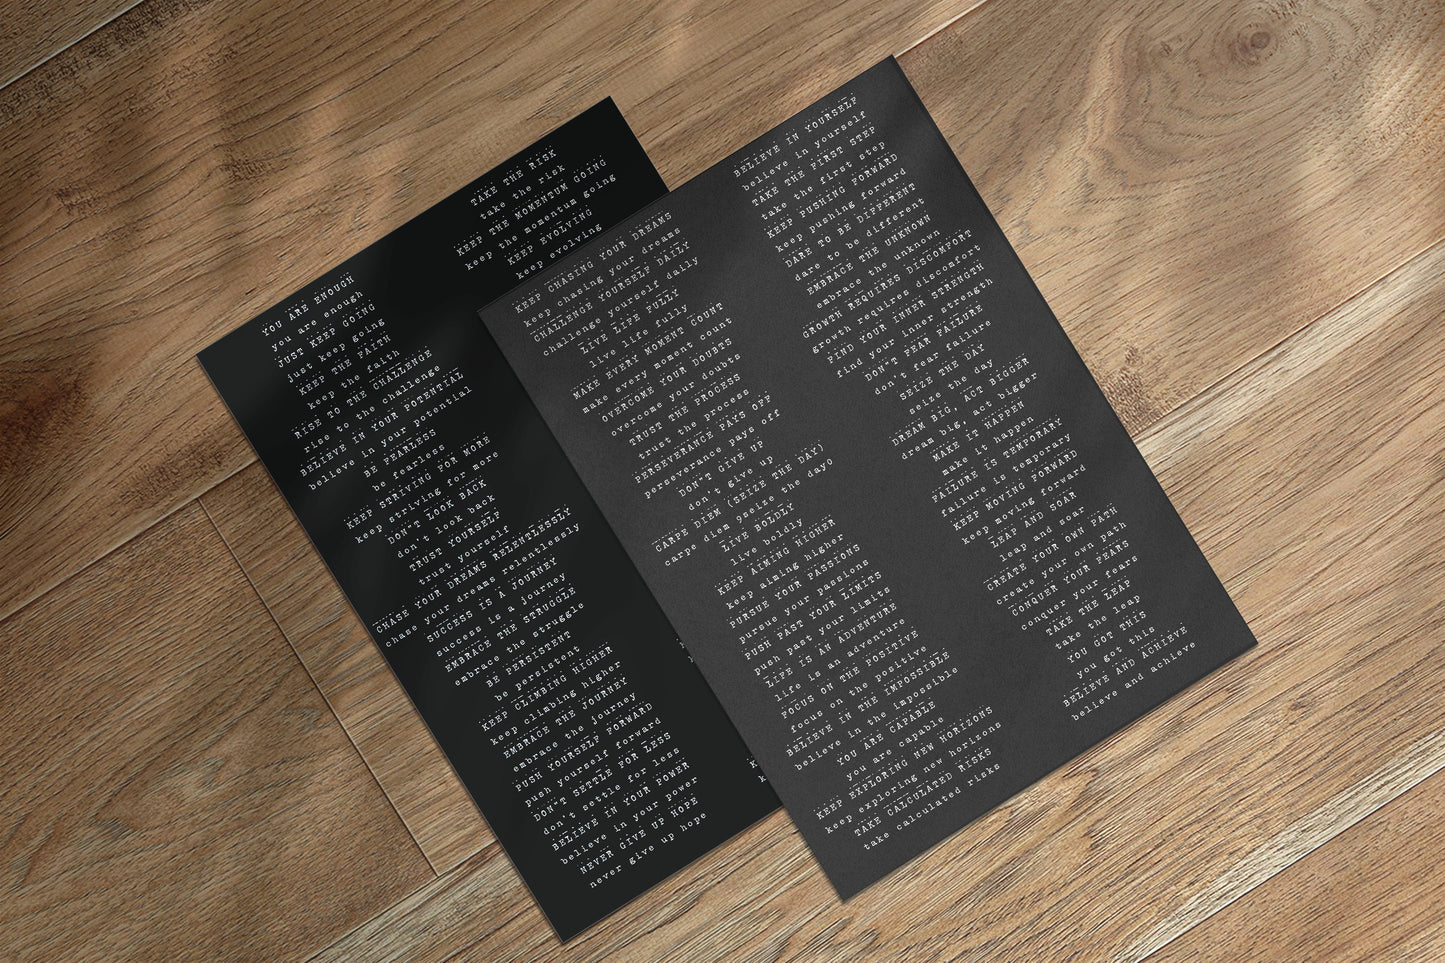 YOU ARE ENOUGH
you are enough
JUST KEEP GOING
just keep going
KEEP THE FAITH
keep the faith
RISE TO THE CHALLENGE
rise to the challenge
BELIEVE IN YOUR POTENTIAL
believe in your potential
BE FEARLESS
be fearless
KEEP STRIVING FOR MORE
keep striving for more
DON"T LOOK BACK
don't look back
TRUST YOURSELF
trust yourself
CHASE YOUR DREAMS RELENTLESSLY
chase your dreams relentlessly
SUCCESS IS A JOURNEY
success is a journey
EMBRACE THE STRUGGLE
embrace the struggle
BE PERSISTENT
be persistent
KEEP CLIMBING HIGHER
keep climbing higher
EMBRACE THE JOURNEY
embrace the journey
PUSH YOURSELF FORWARD
push yourself forward
DON"T SETTLE FOR LESS
don't settle for less
BELIEVE IN YOUR POWER
believe in your power
NEVER GIVE UP HOPE
never give up hope
TAKE THE RISK
take the risk
KEEP THE MOMENTUM GOING
keep the momentum going
KEEP EVOLVING
keep evolving
KEEP CHASING YOUR DREAMS
keep chasing your dreams
CHALLENGE YOURSELF DAILY
challenge yourself daily
LIVE LIFE FULLY
live life fully
MAKE EVERY MOMENT COUNT
make every moment count
OVERCOME YOUR DOUBTS
overcome your doubts
TRUST THE PROCESS
trust the process
PERSEVERANCE PAYS OFF
perseverance pays off
DON"T GIVE UP
don't give up
CARPE DIEM (SEIZE THE DAY)
carpe diem 9seize the day0
LIVE BOLDLY
live boldly
KEEP AIMING HIGHER
keep aiming higher
PURSUE YOUR PASSIONS
pursue your passions
PUSH PAST YOUR LIMITS
push past your limits
LIFE IS AN ADVENTURE
life is an adventure
FOCUS ON THE POSITIVE
focus on the positive
BELIEVE IN THE IMPOSSIBLE
believe in the impossible
YOU ARE CAPABLE
you are capable
KEEP EXPLORING NEW HORIZONS
keep exploring new horizons
TAKE CALCULATED RISKS
take calculated risks
BELIEVE IN YOURSELF
believe in yourself
TAKE THE FIRST STEP
take the first step
KEEP PUSHING FORWARD
keep pushing forward
DARE TO BE DIFFERENT
dare to be different
EMBRACE THE UNKNOWN
embrace the unknown
GROWTH REQUIRES DISCOMFORT
growth requires discomfort
FIND YOUR INNER STRENGTH
find your inner strength
DON'T FEAR FAILURE
don't fear failure
SEIZE THE DAY
seize the day
DREAM BIG, ACT BIGGER
dream big, act bigger
MAKE IT HAPPEN
make it happen
FAILURE IS TEMPORARY
failure is temporary
KEEP MOVING FORWARD
keep moving forward
LEAP AND SOAR
leap and soar
CREATE YOUR OWN PATH
create your own path
CONQUER YOUR FEARS
conquer your fears
TAKE THE LEAP
take the leap
YOU GOT THIS
you got this
BELIEVE AND ACHIEVE
believe and achieve